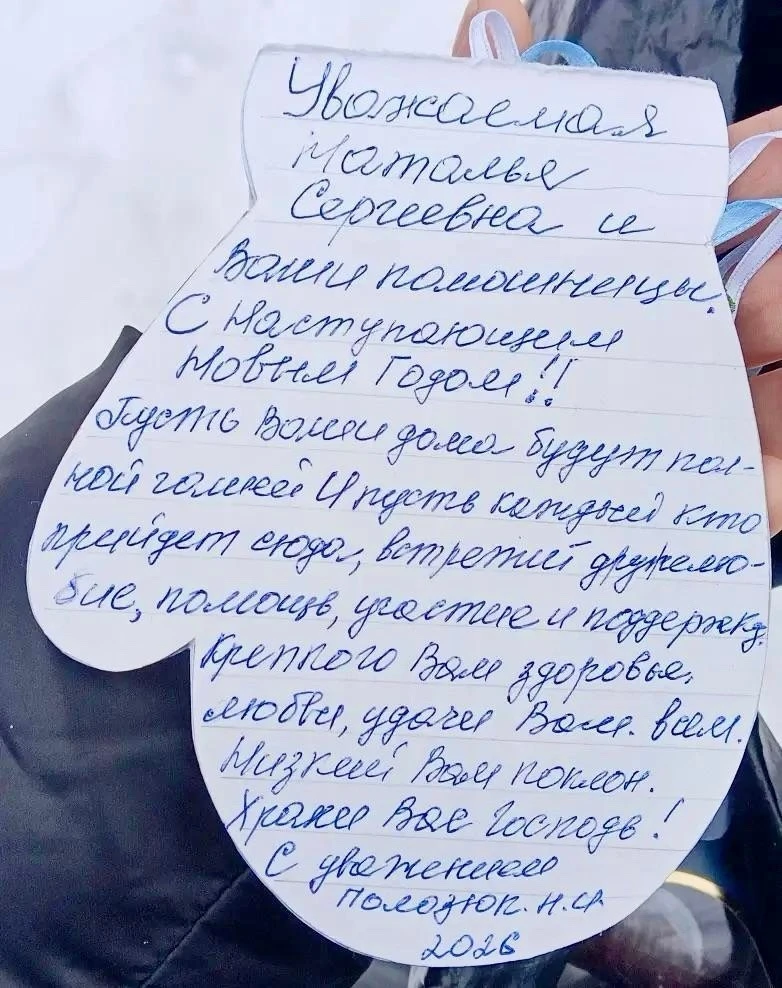 Уважаемая
Наталья
Сергеевна и
Ваши помошницы.
С Наступающим
Новым Годом!!
Пусть Ваши дома будут пол-
ной чашей И пусть каждый кто
прийдет сюда, встретит дружелю-
бие, помощь, участие и поддержку.
Крепкого Вам здоровья,
любви, удачи Вам. всем.
Низкий Вам поклон.
Храни Вас Господь!
С уважением
Полозюк. Н.И
2026